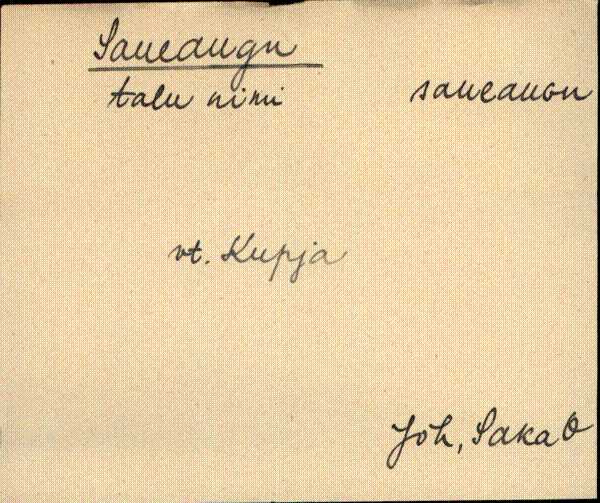 Saueaugu
talu nimi saueauɢu
vt. Kupja
Joh, Saka O